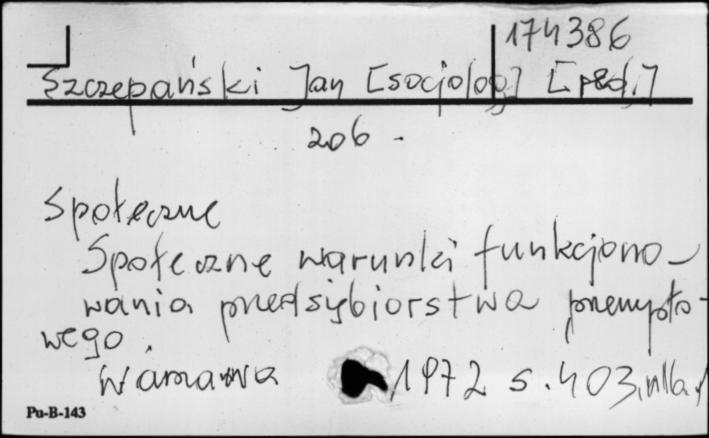 174386
Szczepański Jan [socjolog] [red.]
206.
Społeczne
Społeczne warunki funkcjono-
wania przedsiębiorstwa przemysło-
wego.
Warszawa 1972 s. 403,
Pu-B-143